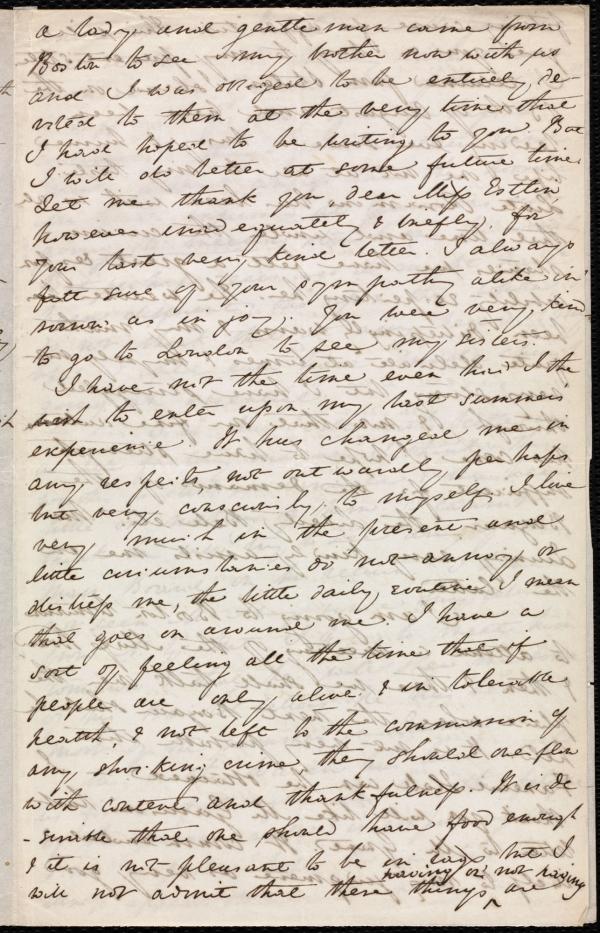 a lady and gentleman came from
Boston to see my brother now with us
and I was obliged to be entirely de-
voted to them at the very time that
I had hoped to be writing to you. But
I will do better at some future time.
Let me thank you, dear Miss Estlin,
however inadequately & briefly, for
your last very kind letter. I always
felt sure of your sympathy alike in
sorrow as in joy. You were very kind
to go to London to see my sisters.
I have not the time even had I the
wish to enter upon my last summer's
experience. It has changed me in
any respects, not outwardly perhaps
but very consciously, to myself. I live
very much in the present and
little circumstances do not annoy or
distress me, the little daily routine I mean
that goes on around me. I have a
sort of feeling all the time that if
people are only alive & in tolerable
health, & not left to the commission of
any shocking crime, they should overflow
with content and thankfulness. It is de
-sirable that one should have food enough
& it is not pleasant to be in rags but I
having or not having
will not admit that these things ^ are